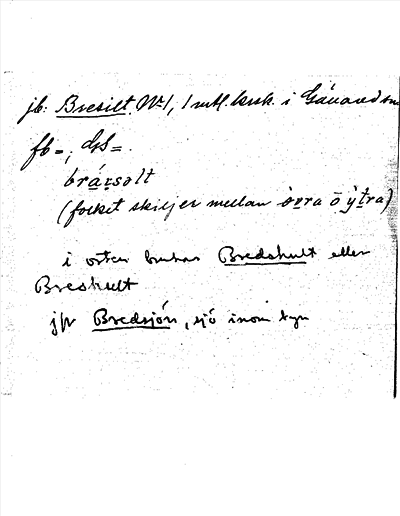 jb: Bresilt No 1, 1 mtl. krsk. i Gåvared sn
fb =; dsb =.
brársəlt
(folket skiljer mellan òvra ō ỳtra)
i orten brukas Bredshult eller
Breshult
jfr Bredsjön, sjö inom byn